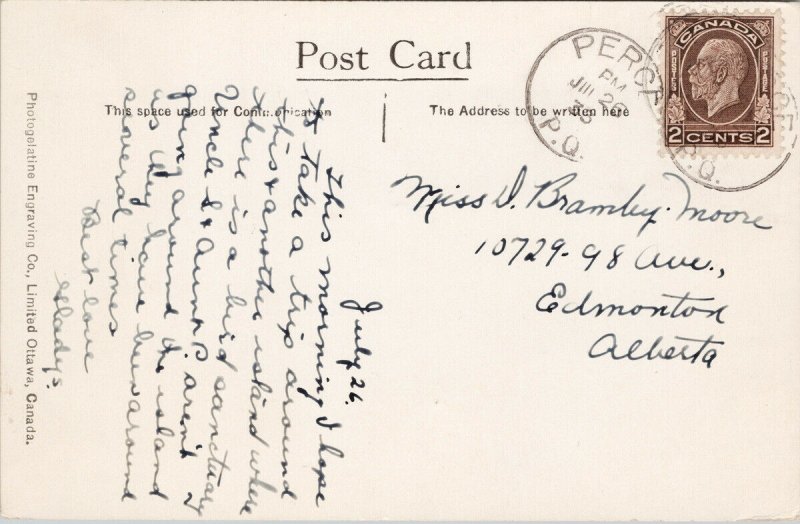 Post Card
This space used for Communication
The Address to be written here
PERCE
PM
JUL 26
P.Q.
CANADA
POSTES
POSTAGE
2 CENTS 2
P.Q.
Miss D. Bramley-Moore
10729-98 Ave.,
Edmonton
Alberta
July 26.
This morning I hope
to take a trip around
this & another island where
there is a bird sanctuary
Uncle S & Aunt B. aren't
going around the island
as they have been around
several times
Best love
Gladys.
Photogelatine Engraving Co., Limited Ottawa, Canada.